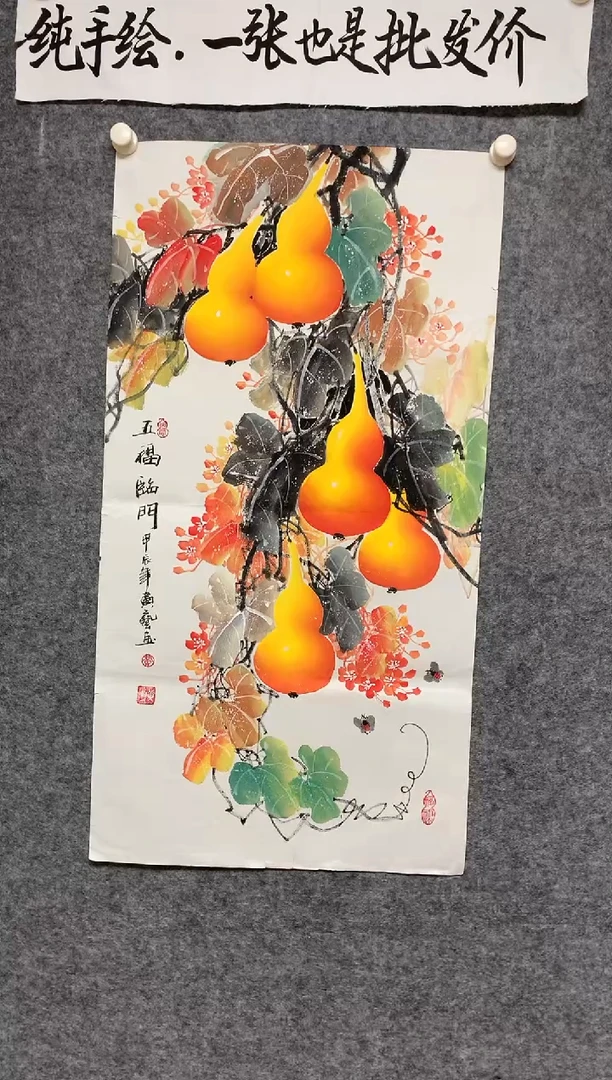 纯手绘.一张也是批发价
五福臨門
甲辰年黄藝画